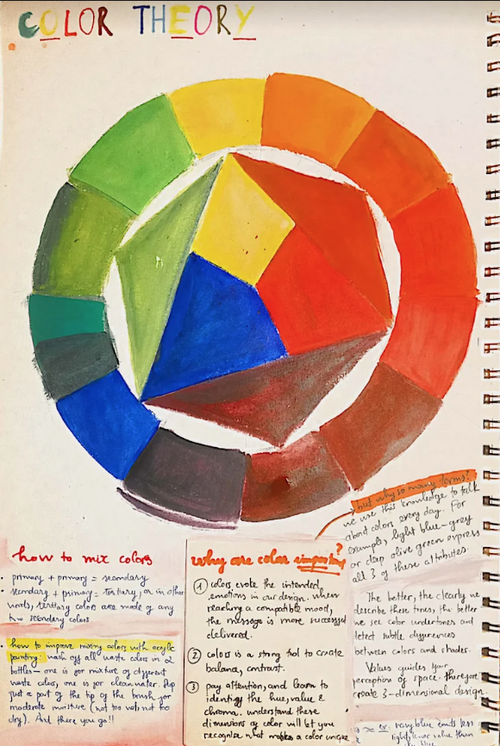 COLOR THEORY
how to mix colors
• primary + primary = secondary
• secondary + primary = Tertiary, or in other
words, tertiary colors are made of any
two secondary colors
• how to improve mixing colors with acrylic
painting: wash off all waste colors in 2
bottles – one is for mixture of different
waste colors, one is for clean water.
just a part of the tip of the brush for
moderate moisture (not too wet nor too
dry). And there you go!!
Why are color important?
① colors evoke the intended
emotions in our design. when
reaching a compatible mood,
the message is more successful
delivered.
② colors is a strong tool to create
balance, contrast.
③ pay attention, and learn to
identify the hue, value &
chroma. understand these
dimensions of color will let you
recognize what makes a color unique
but why so many terms?
we use this knowledge to talk
about colors every day. For
example, light blue-grey
or deep olive green express
all 3 of these attributes
The better, the clearly we
describe these tones, the better
we see color undertones and
detect subtle differences
between colors and shades.
Values guides your
perception of space, therefore
create 3-dimensional design.
ex: navy blue emits less
light, lower value than